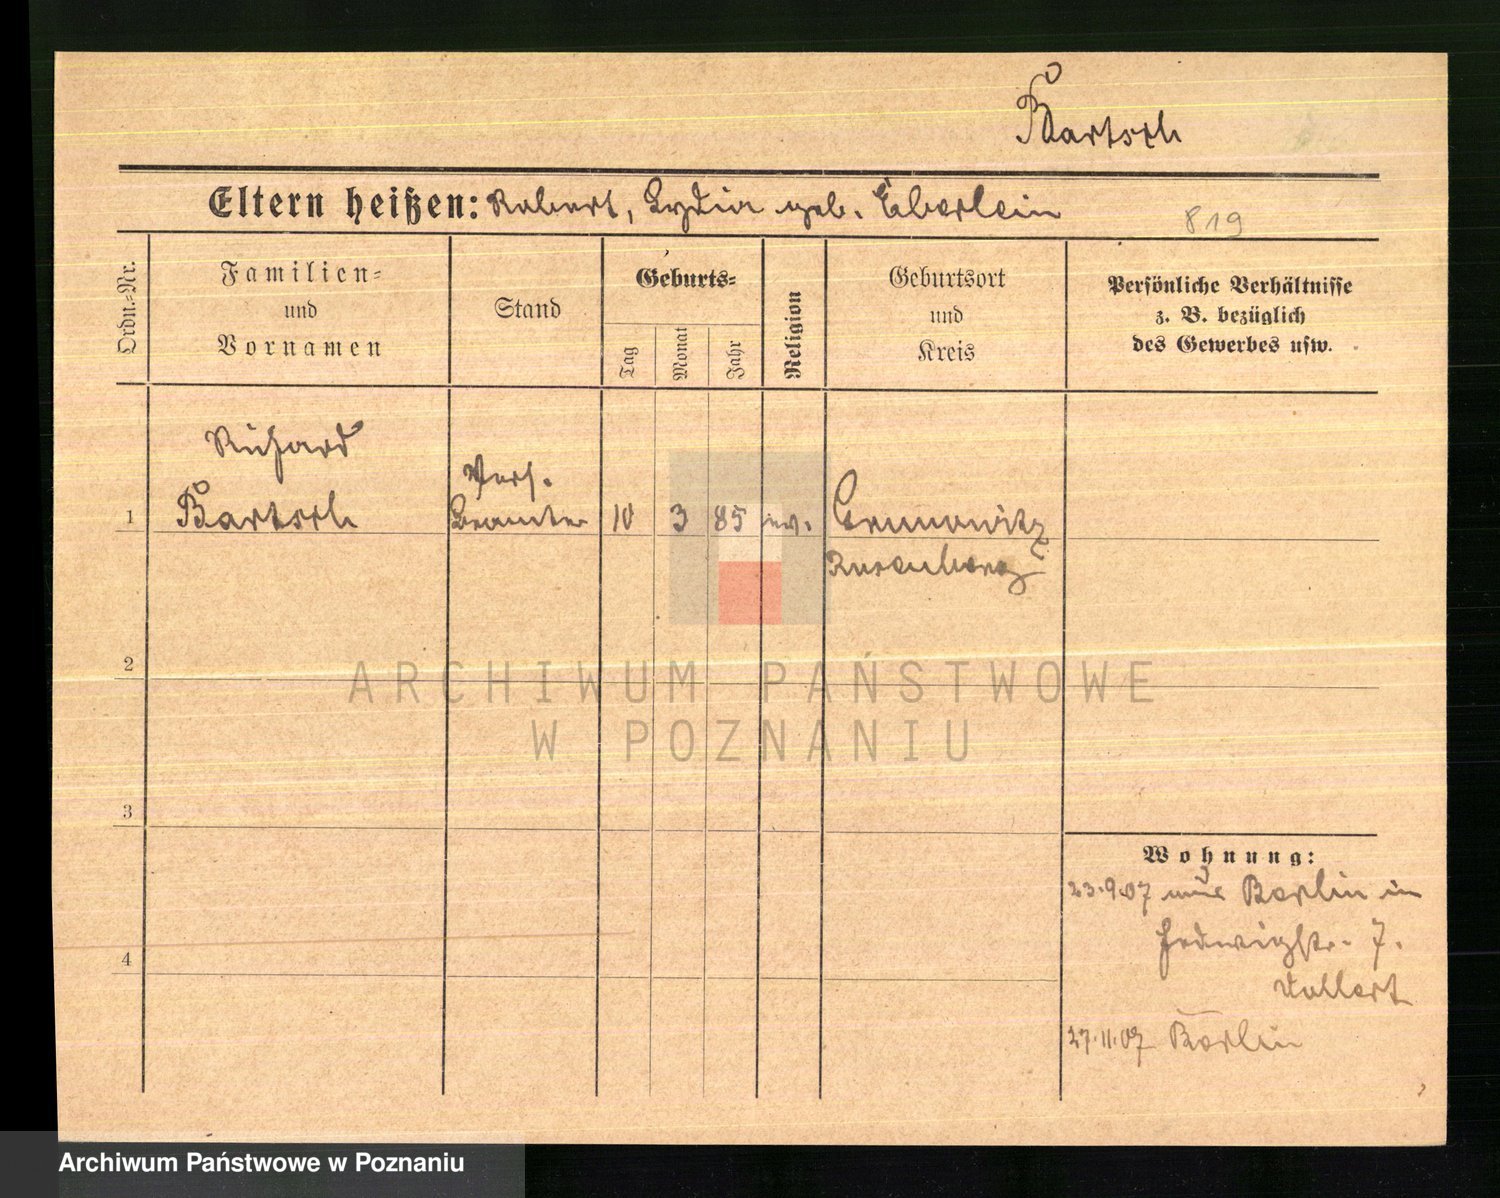 Bartsch
Eltern heißen: Robert, Lydia geb. Eberlein
819
Ordn.=Nr.
Familien=
und
Vornamen
Stand
Geburts=
Tag
Monat
Jahr
Religion
Geburtsort
und
Kreis
Persönliche Verhältnisse
z. B. bezüglich
des Gewerbes usw.
Richard
Bartsch
Vers.
Beamter
1
10
3
85
ev.
Rosenberg
2
ARCHIWUM PAŃSTWOWE
W POZNANIU
3
Wohnung:
23.9.07 Berlin in
Hedwigstr. 7.
4
27.11.07 Berlin
Archiwum Państwowe w Poznaniu